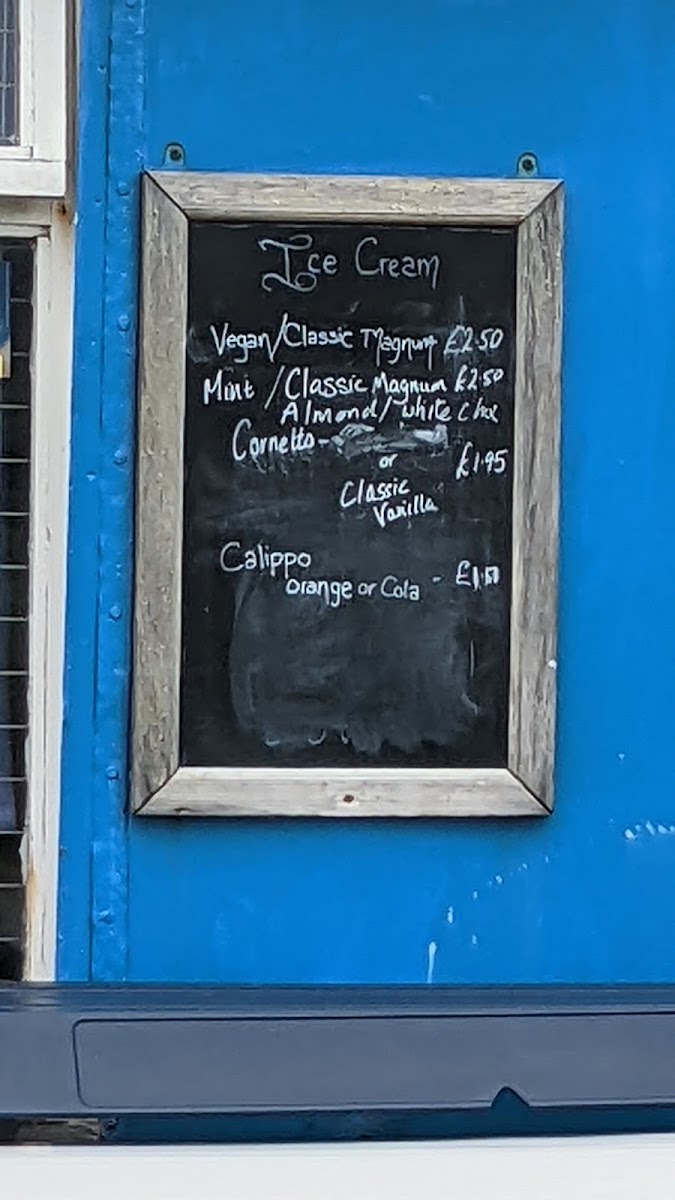 Ice Cream
Vegan/Classic Magnum £2.50
Mint /Classic Magnum £2.50
Almond/White Choc
Cornetto -
or £1.95
Classic
Vanilla
Calippo
Orange or Cola -